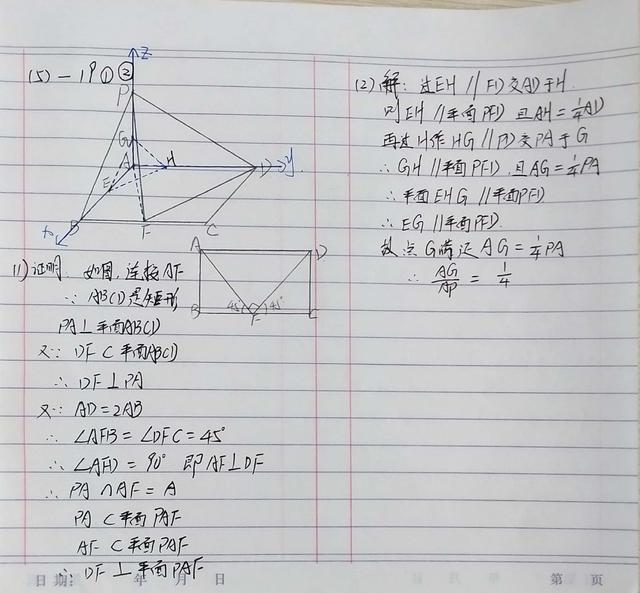 (5) - 19 ① ②
Z
P
G
A
H
D
y
E
B
F
C
x
(1) 证明: 如图, 连接AF
∵ ABCD是矩形
PA⊥平面ABCD
又∵ DF⊂平面ABCD
∴ DF⊥PA
又∵ AD=2AB
∴ ∠AFB=∠DFC=45°
∴ ∠AFD=90° 即AF⊥DF
∴ PA∩AF=A
PA⊂平面PAF
AF⊂平面PAF
∴ DF⊥平面PAF
A
D
B
45°
F
45°
C
(2) 解: 过EH∥FD交AD于H
则EH∥平面PFD 且AH=¼AD
再过H作HG∥PD交PA于G
∴ GH∥平面PFD 且AG=¼PA
∴ 平面EHG∥平面PFD
∴ EG∥平面PFD
故点G满足AG=¼PA
∴ AG/AP = 1/4
日期: 年 月 日
第 页